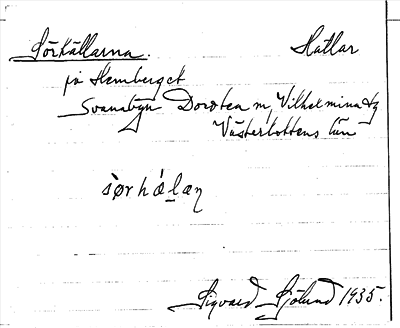 Sörhällarna. Hällar
på Hemberget
Svanabyn Dorotea m, Vilhelmina tg
Västerbottens län
sørhælaṇ
Sigvard Sjölund 1935.